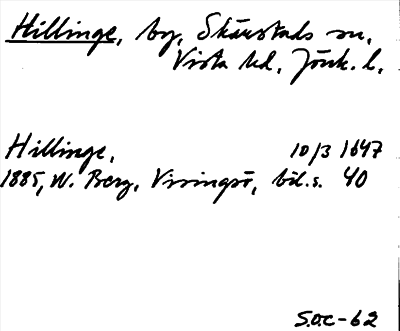 Hillinge, by, Skärstads sn,
Vista hd, Jönk. l.
Hillinge, 10/3 1647
1885, W. Berg, Visingsö, bil.s. 40
S.OC-62